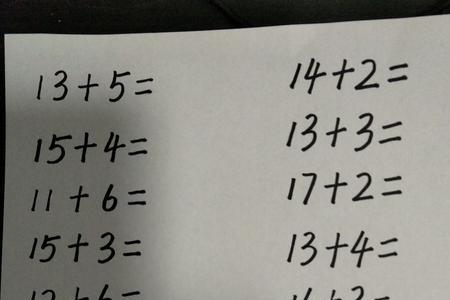 13+5=
14+2=
15+4=
13+3=
11+6=
17+2=
15+3=
13+4=